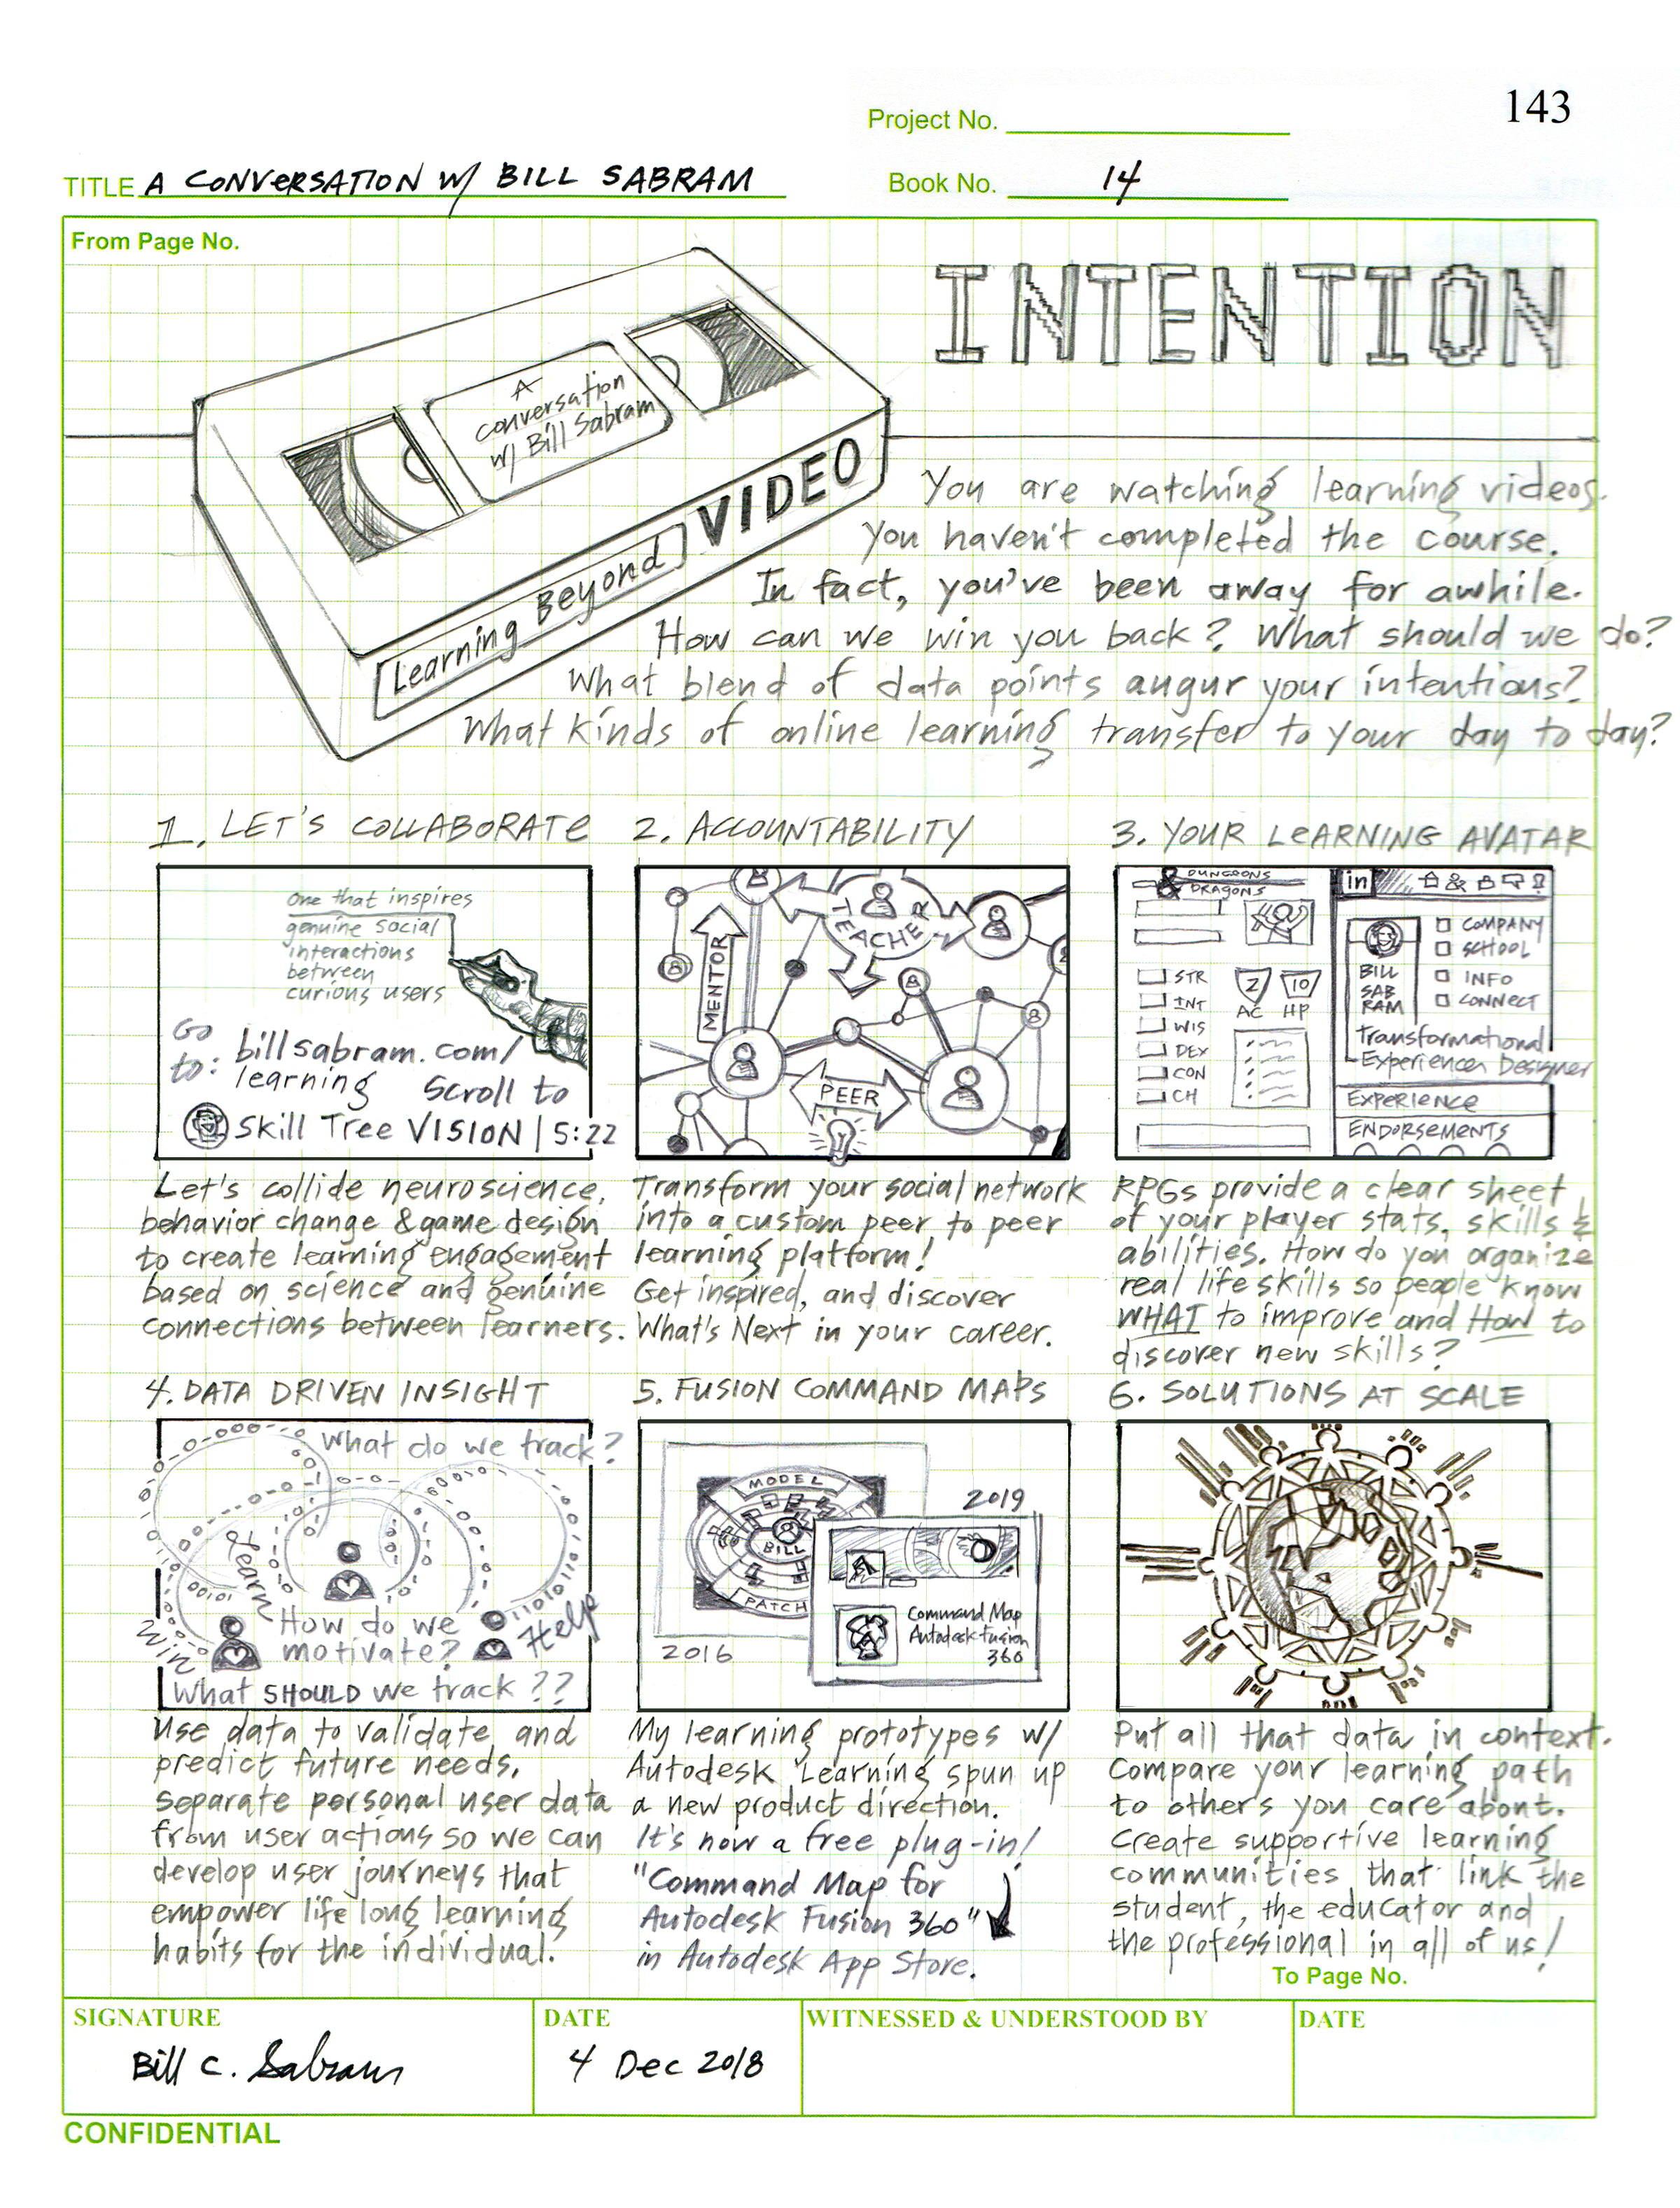 143
Project No.
TITLE A CONVERSATION W/ BILL SABRAM
Book No. 14
From Page No.
INTENTION
A
conversation
w/ Bill Sabram
Learning Beyond VIDEO
You are watching learning videos.
You haven't completed the course.
In fact, you've been away for awhile.
How can we win you back? What should we do?
What blend of data points augur your intentions?
What kinds of online learning transfer to your day to day?
1. LET'S COLLABORATE
One that inspires
genuine social
interactions
between
curious users
Go
to: billsabram.com/
learning Scroll to
Skill Tree VISION | 5:22
Let's collide neuroscience,
behavior change & game design
to create learning engagement
based on science and genuine
connections between learners.
2. ACCOUNTABILITY
TEACHER
MENTOR
PEER
Transform your social network
into a custom peer to peer
learning platform!
Get inspired, and discover
What's Next in your career.
3. YOUR LEARNING AVATAR
DUNGEONS
& DRAGONS
STR
INT
WIS
DEX
CON
CH
2
10
AC HP
in
COMPANY
SCHOOL
INFO
CONNECT
BILL
SAB
RAM
Transformational
Experience Designer
EXPERIENCE
ENDORSEMENTS
RPGs provide a clear sheet
of your player stats, skills &
abilities. How do you organize
real life skills so people know
WHAT to improve and HOW to
discover new skills?
4. DATA DRIVEN INSIGHT
What do we track?
Learn
00101
Win
How do we
motivate?
1101011
Help
What SHOULD we track??
Use data to validate and
predict future needs.
Separate personal user data
from user actions so we can
develop user journeys that
empower life long learning
habits for the individual.
5. FUSION COMMAND MAPS
MODEL
BILL
PATCH
2016
2019
Command Map
Autodesk Fusion
360
My learning prototypes w/
Autodesk Learning spun up
a new product direction.
It's now a free plug-in!
"Command Map for
Autodesk Fusion 360"
in Autodesk App Store.
6. SOLUTIONS AT SCALE
Put all that data in context.
Compare your learning path
to others you care about.
Create supportive learning
communities that link the
student, the educator and
the professional in all of us!
To Page No.
SIGNATURE
Bill C. Sabram
DATE
4 Dec 2018
WITNESSED & UNDERSTOOD BY
DATE
CONFIDENTIAL